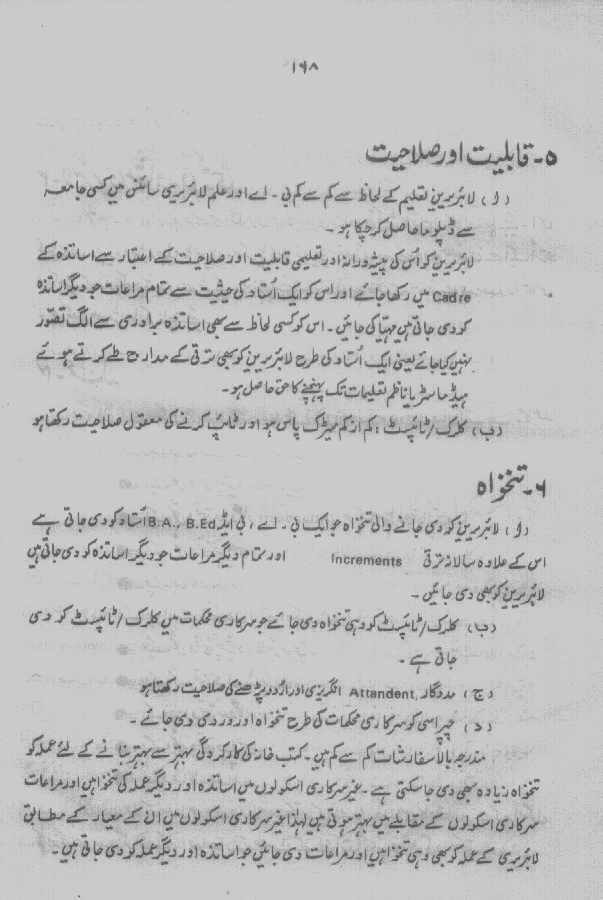 ۱۶۸
۵۔ قابلیت اور صلاحیت
(ا) لائبریرین تعلیم کے لحاظ سے کم سے کم بی۔ اے اور علم لائبریری سائنس میں کسی جامعہ
سے ڈپلوما حاصل کر چکا ہو۔
لائبریرین کو اُس کی پیشہ ورانہ اور تعلیمی قابلیت اور صلاحیت کے اعتبار سے اساتذہ کے
Cadre میں رکھا جائے اور اس کو ایک اُستاد کی حیثیت سے تمام مراعات جو دیگر اساتذہ
کو دی جاتی ہیں مہیّا کی جائیں۔ اس کو کسی لحاظ سے بھی اساتذہ برادری سے الگ تصوّر
نہیں کیا جائے یعنی ایک اُستاد کی طرح لائبریرین کو بھی ترقی کے مدارج طے کرتے ہوئے
ہیڈ ماسٹر یا ناظم تعلیمات تک پہنچنے کا حق حاصل ہو۔
(ب) کلرک/ٹائپسٹ : کم از کم میٹرک پاس ہو اور ٹائپ کرنے کی معقول صلاحیت رکھتا ہو
۶۔ تنخواہ
(ا) لائبریرین کو دی جانے والی تنخواہ جو ایک بی۔ اے، بی ایڈ B.A., B.Ed اُستاد کو دی جاتی ہے
اس کے علاوہ سالانہ ترقی Increments اور تمام دیگر مراعات جو دیگر اساتذہ کو دی جاتی ہیں
لائبریرین کو بھی دی جائیں۔
(ب) کلرک/ٹائپسٹ کو وہی تنخواہ دی جائے جو سرکاری محکمات میں کلرک/ٹائپسٹ کو دی
جاتی ہے۔
(ج) مددگار Attandent, انگریزی اور اُردو پڑھنے کی صلاحیت رکھتا ہو
(د) چپراسی کو سرکاری محکمات کی طرح تنخواہ اور وردی دی جائے۔
مندرجہ بالا سفارشات کم سے کم ہیں۔ کتب خانہ کی کارکردگی بہتر سے بہتر بنانے کے لئے عملہ کو
تنخواہ زیادہ بھی دی جاسکتی ہے۔ غیر سرکاری اسکولوں میں اساتذہ اور دیگر عملہ کی تنخواہیں اور مراعات
سرکاری اسکولوں کے مقابلے میں بہتر ہوتی ہیں لہٰذا غیر سرکاری اسکولوں میں ان کے معیار کے مطابق
لائبریری کے عملہ کو بھی وہی تنخواہیں اور مراعات دی جائیں جو اساتذہ اور دیگر عملہ کو دی جاتی ہیں۔